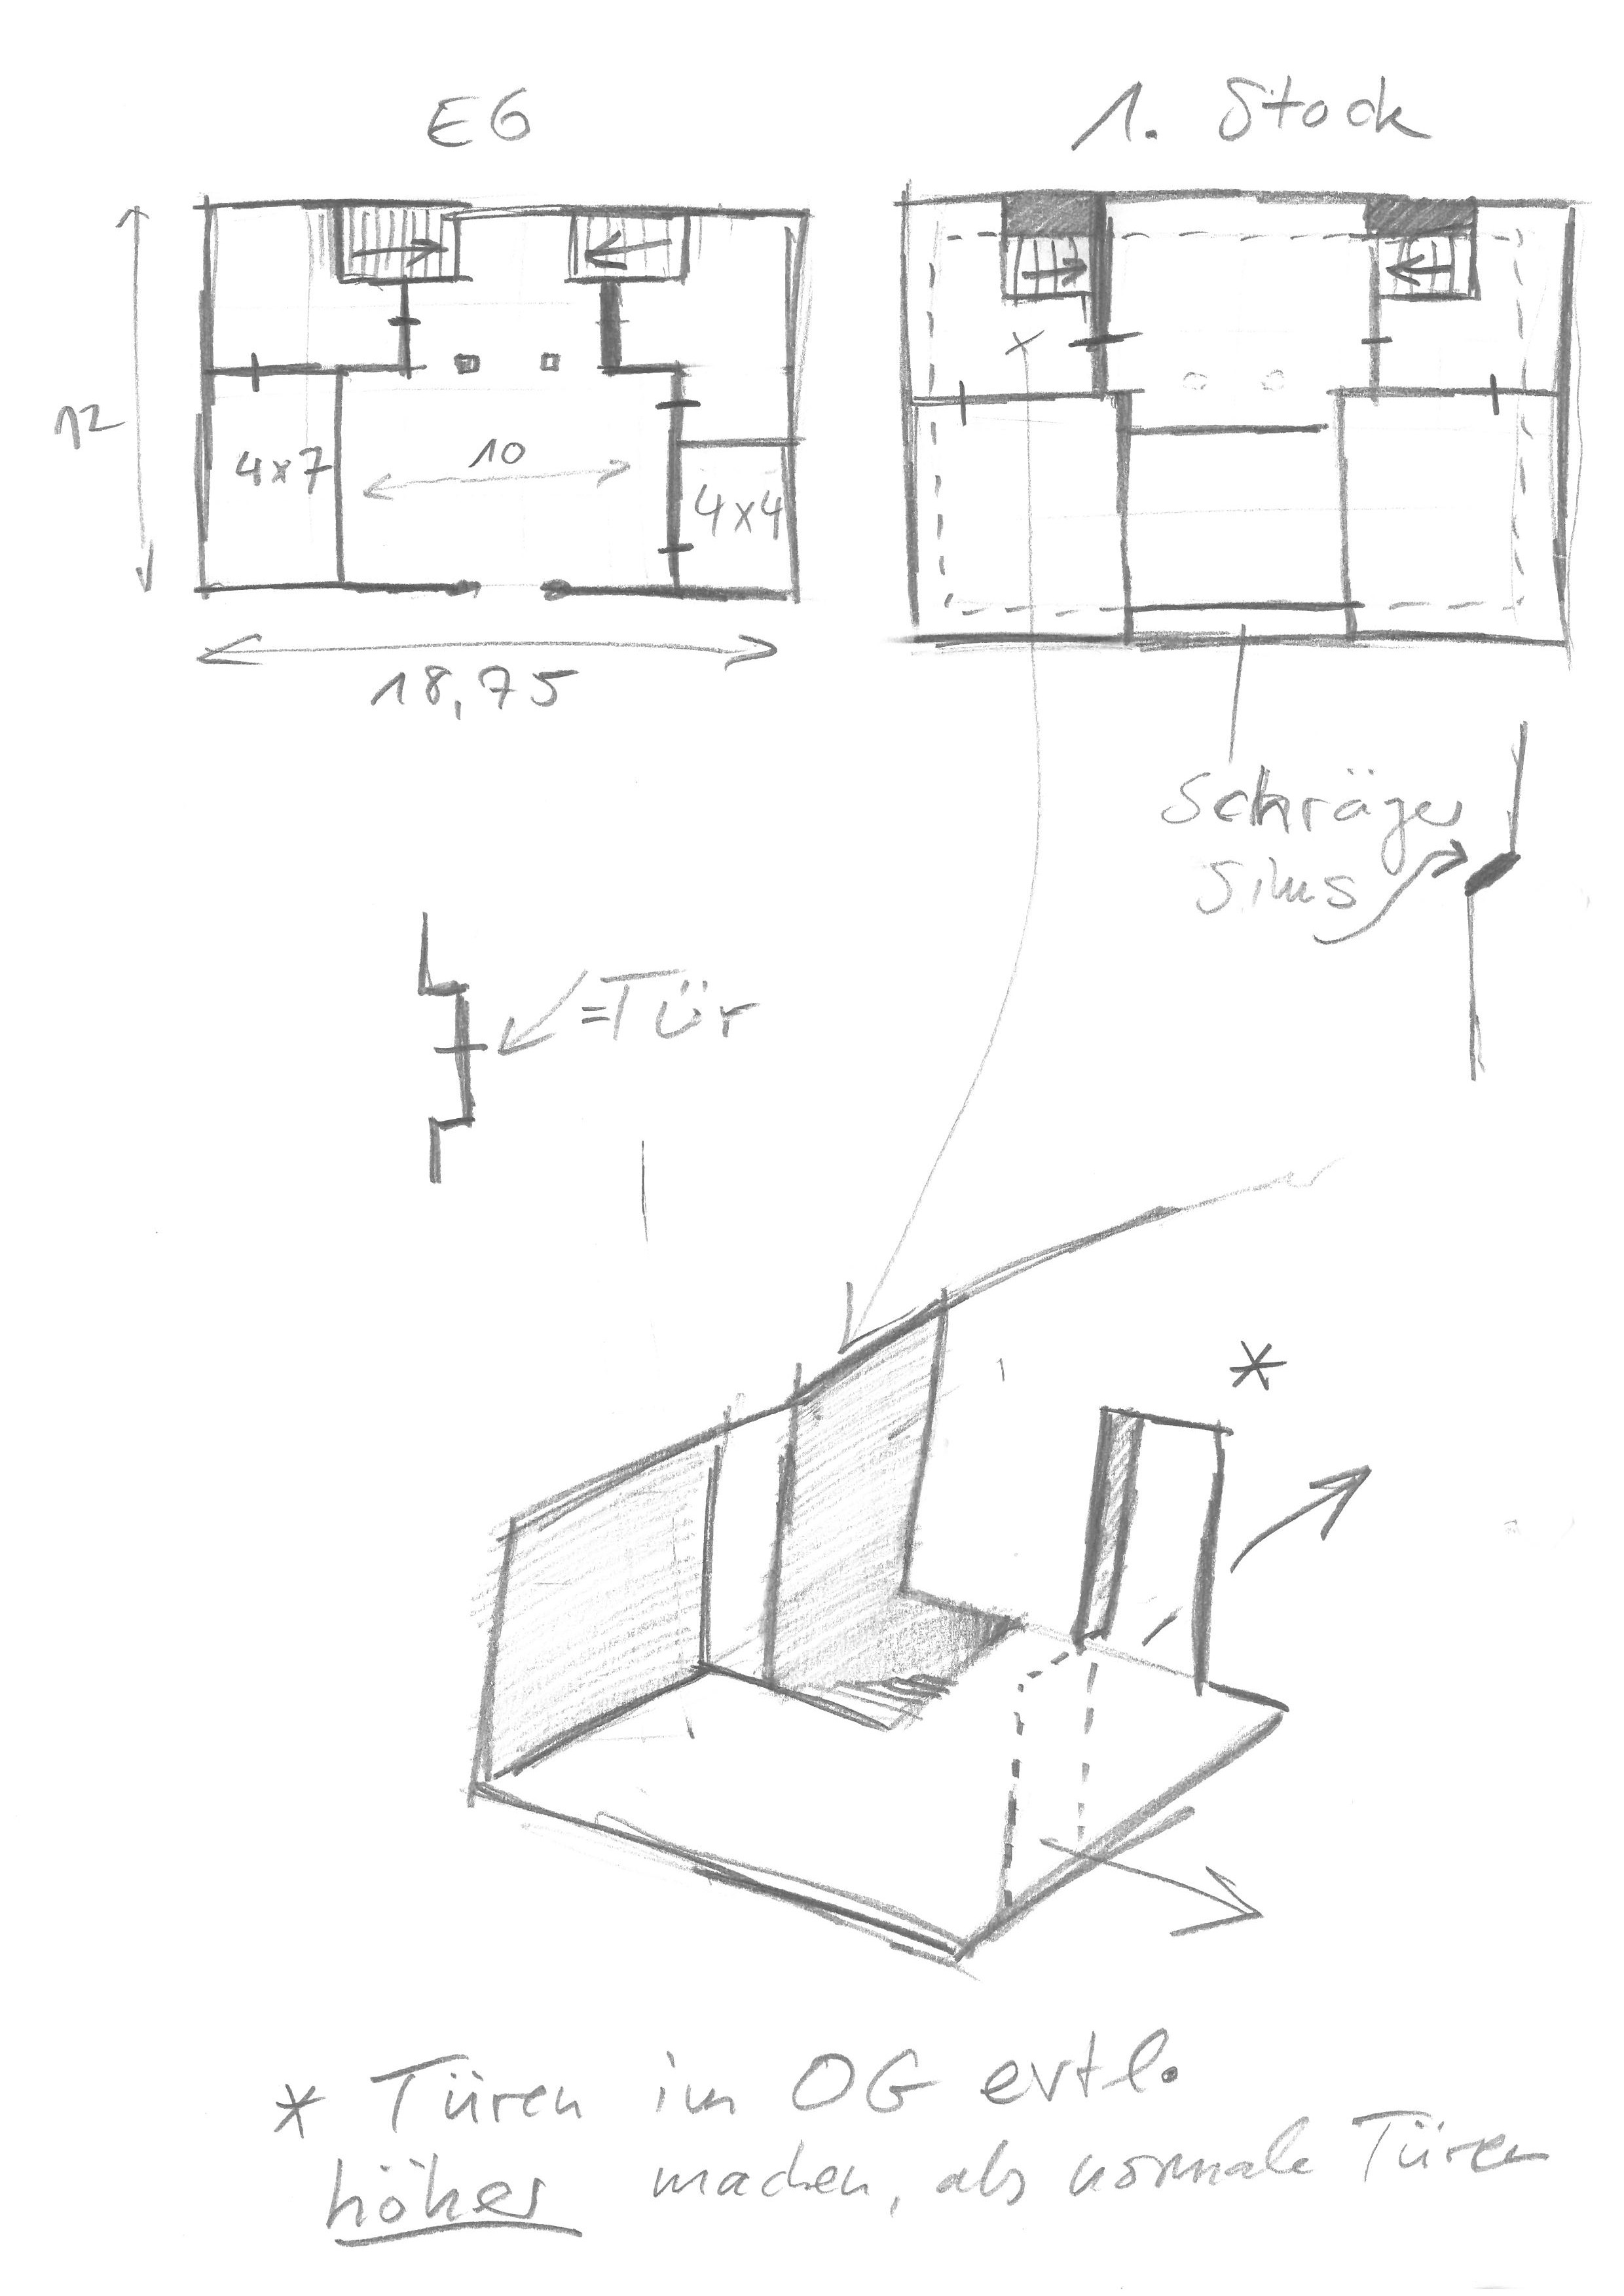 EG
1. Stock
12
4x7
10
4x4
18,75
Schräger
Sims
=Tür
*
* Türen im OG evtl.
höher machen, als normale Türen